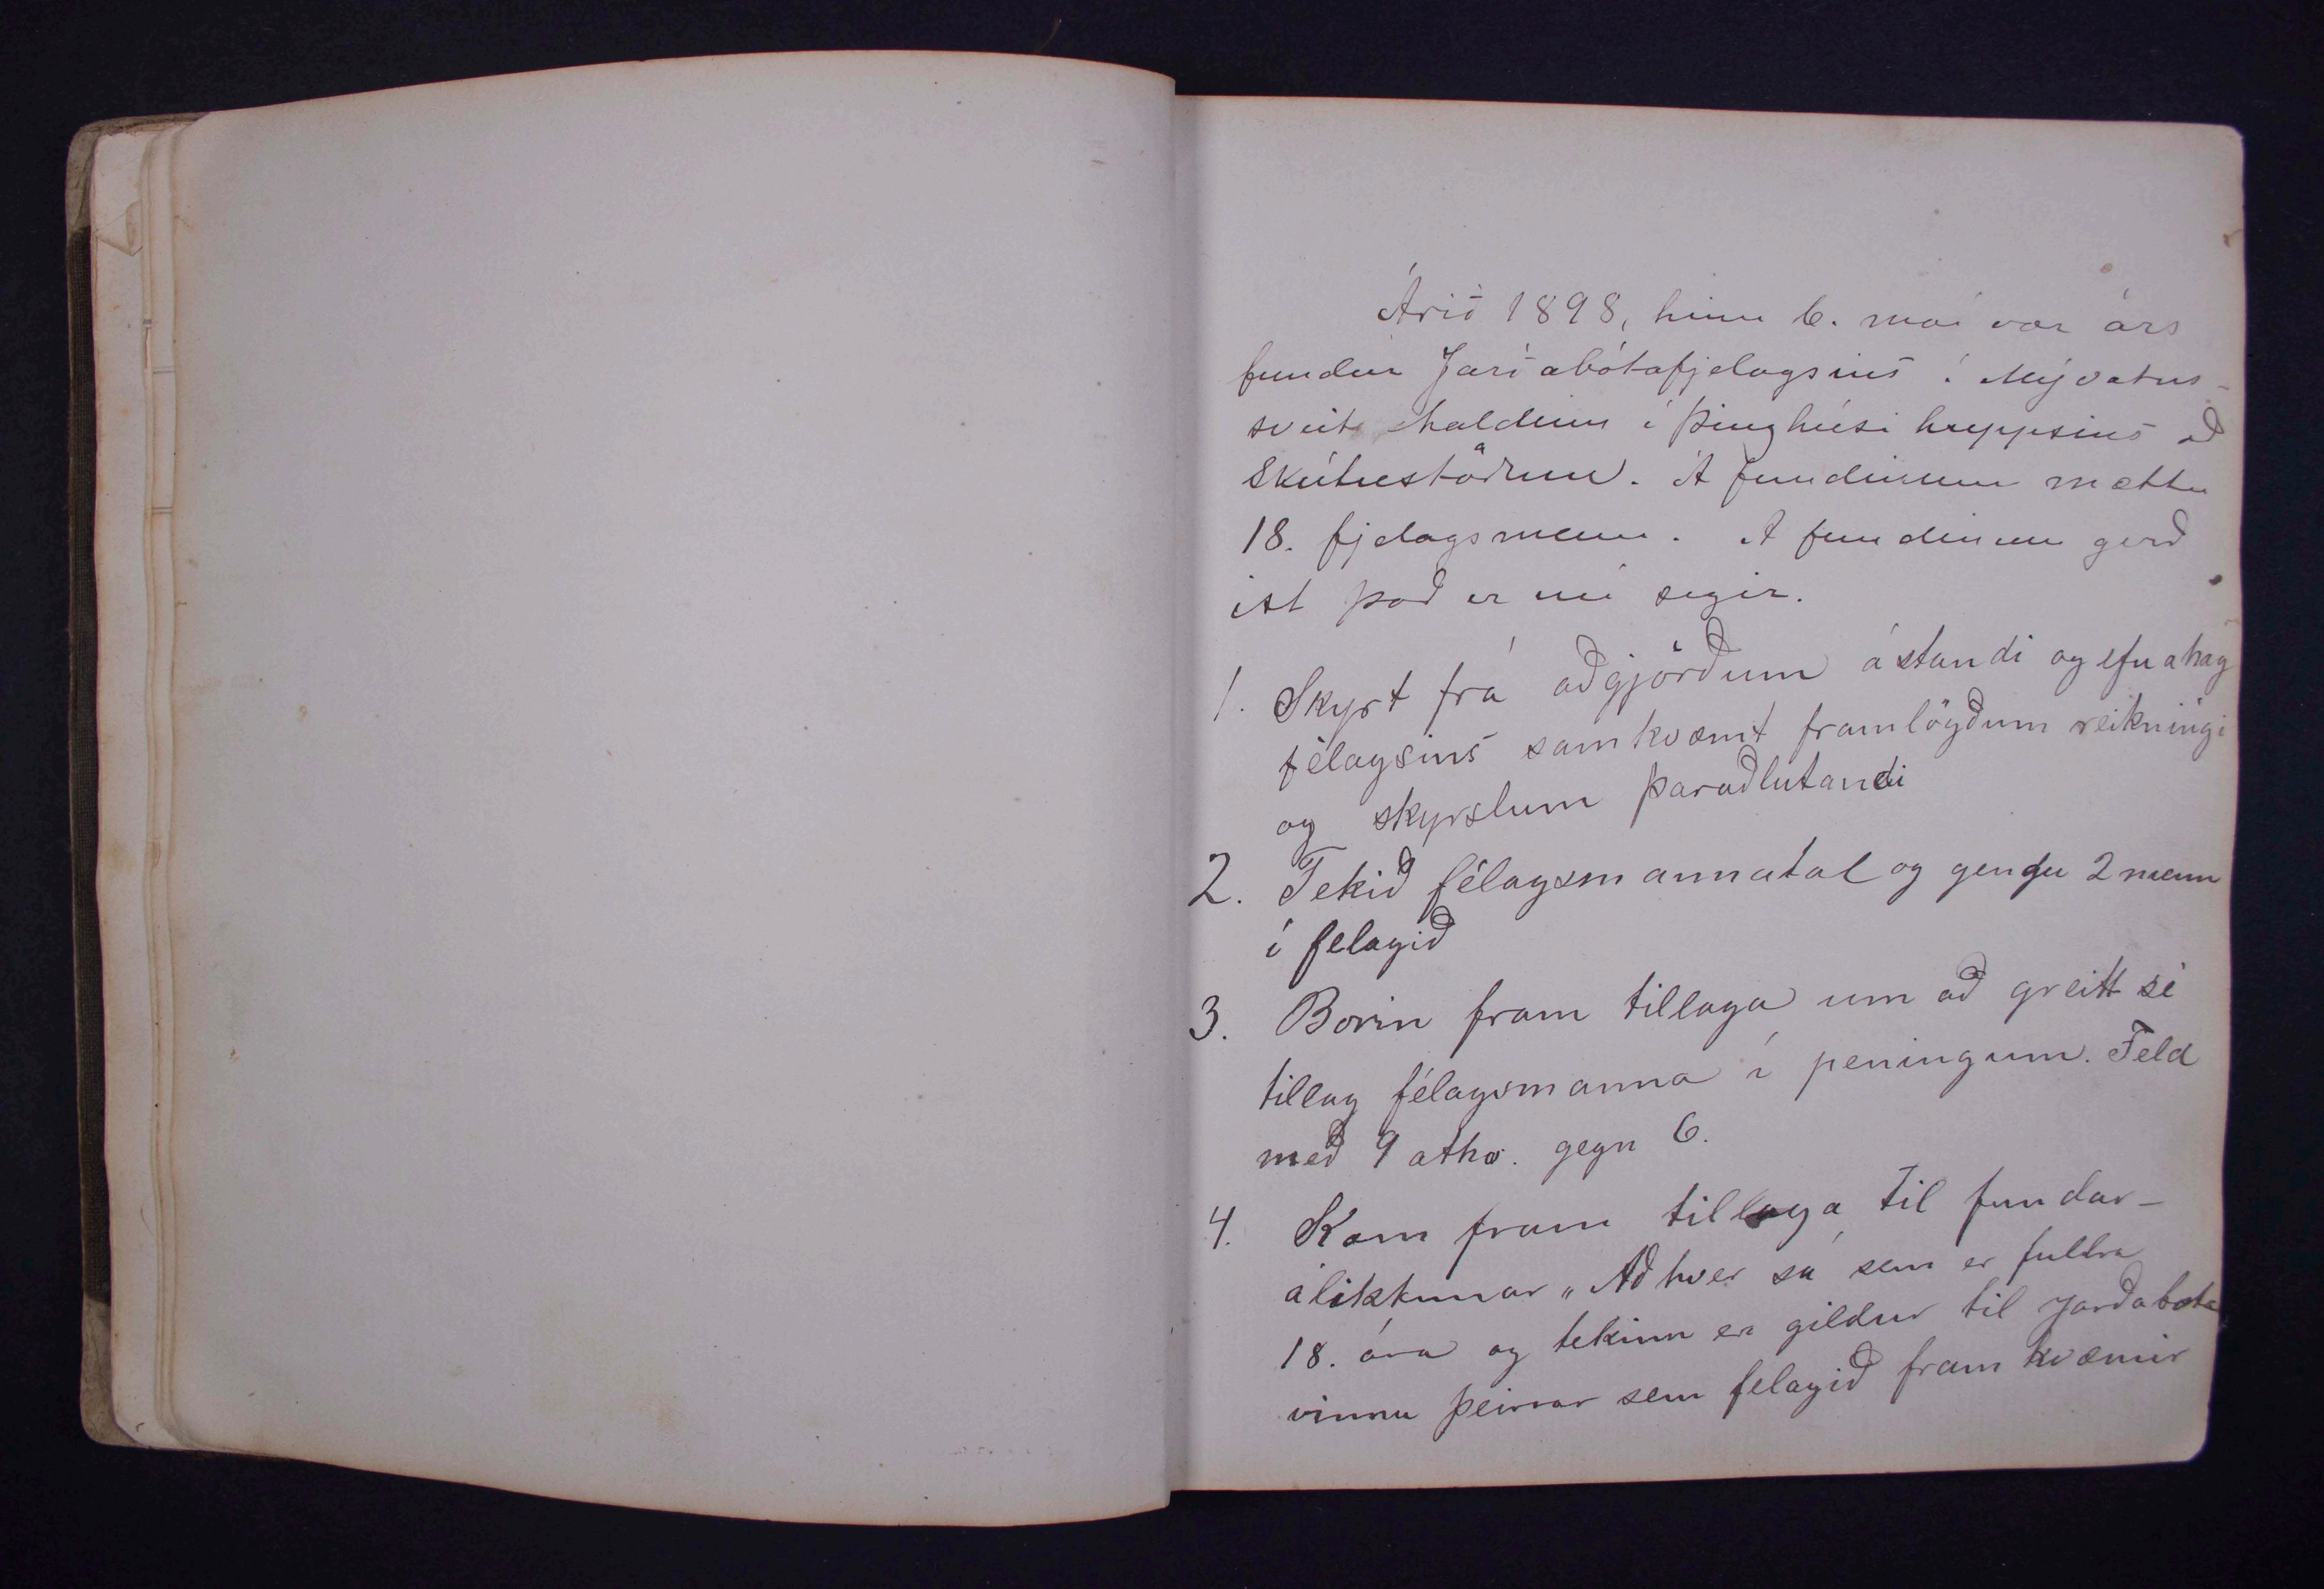 Árið 1898, hinn 6. maí var árs
fundur Jarðabótafjelagsins í Mývatns-
sveit haldinn í Þinghúsi hreppsins að
Skútustöðum. Á fundinum mættu
18. fjelagsmenn. Á fundinum gerð
ist það er nú segir.
1. Skyrt frá aðgjörðum ástandi og efnahag
félagsins samkvæmt framlögðum reikningi
og skyrslum þaraðlutandi
2. Tekið félagsmannatal og gengu 2 menn
í felagið
3. Borin fram tillaga um að greitt sé
tillag félagsmanna í peningum. Feld
með 9 atkv. gegn 6.
4. Kom fram tillaga til fundar-
álikkunar „Að hver sá sem er fullra
18. ára og tekinn er gildur til jarðabota
vinnu þeirrar sem felagið fram kvæmir